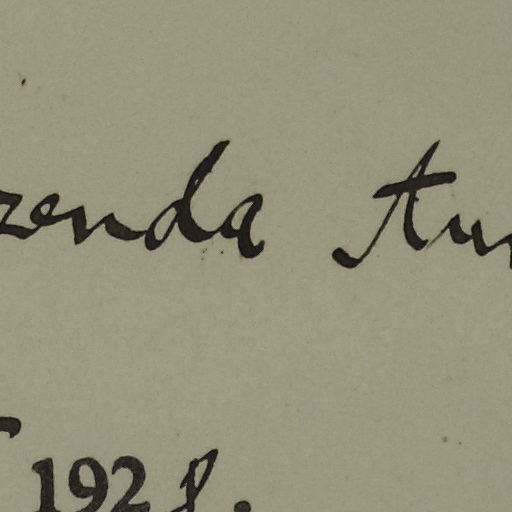 zenda Aur
1928.